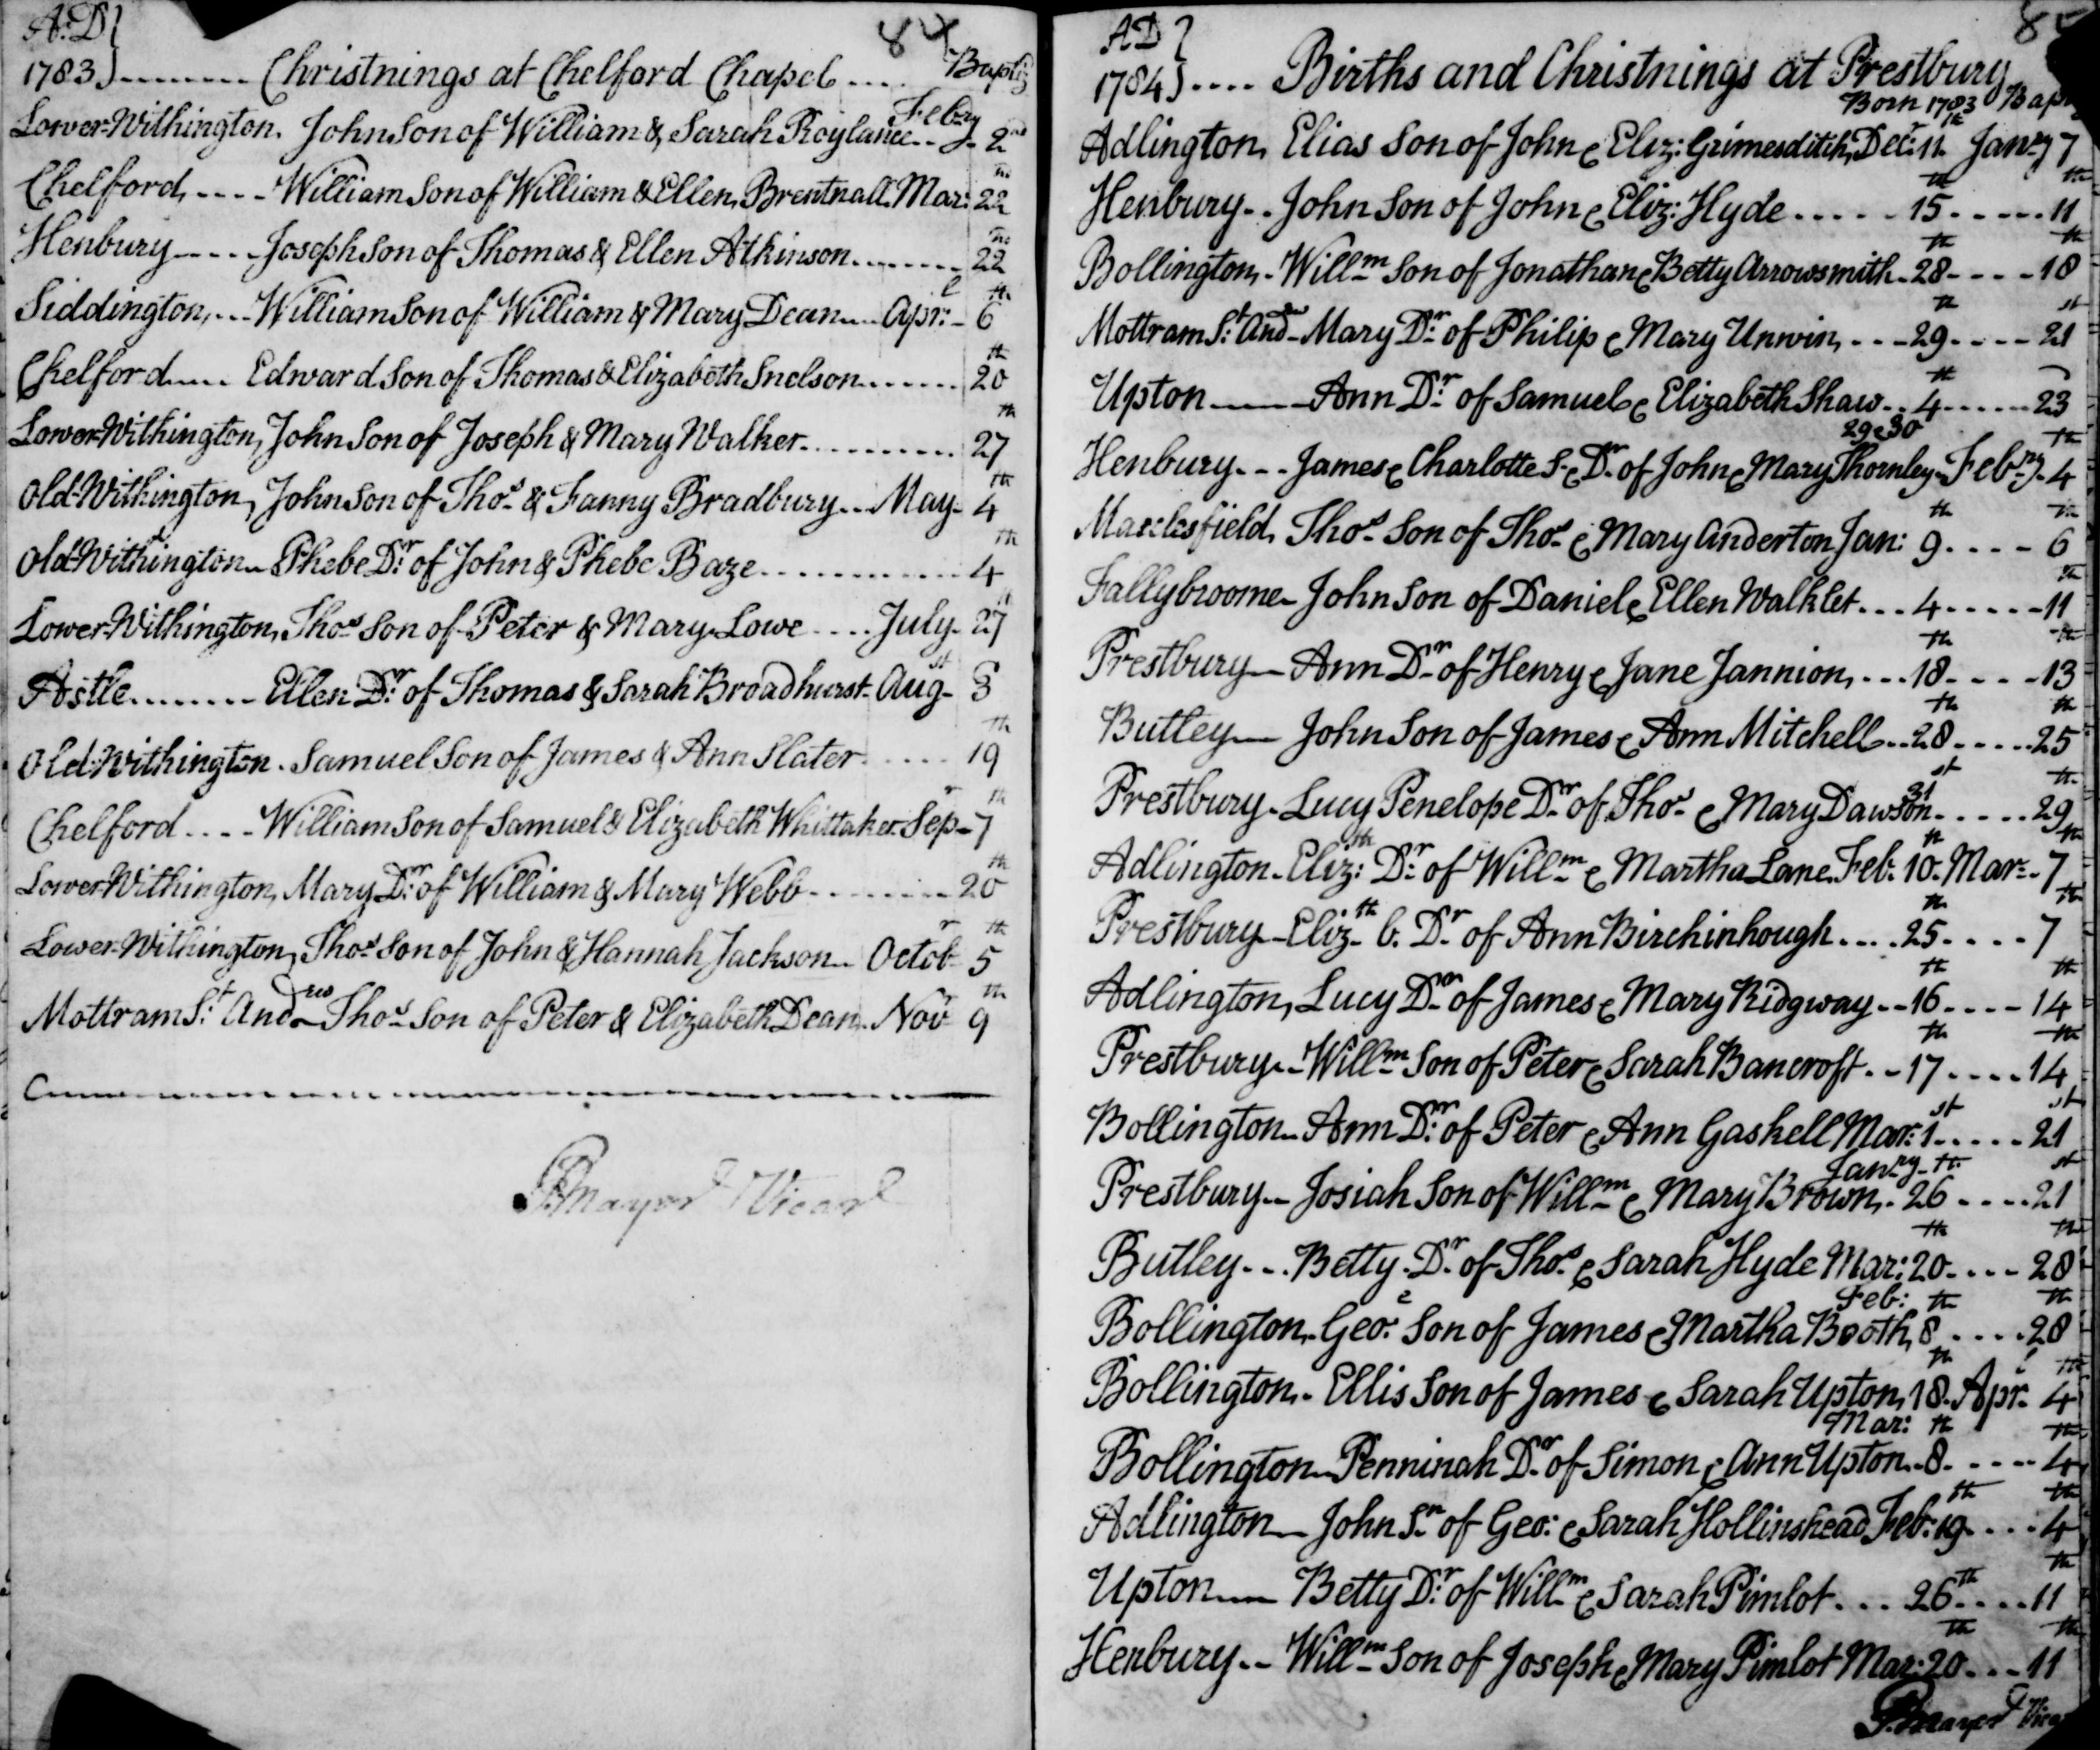 A:D} 84
1783}........ Christnings at Chelford Chapel .... Baptiz
Febry
Lower-Withington. John Son of William & Sarah Roylance.. 2nd
Chelford, .... William Son of William & Ellen Brentnall. Mar: 22nd
Henbury .... Joseph Son of Thomas & Ellen Atkinson ........ 22nd
Siddington, ... William Son of William & Mary Dean .... Aprl: 6th
Chelford .... Edward Son of Thomas & Elizabeth Snelson ...... 20th
Lower-Withington, John Son of Joseph & Mary Walker .......... 27th
Old-Withington, John Son of Thos & Fanny Bradbury ... May 4th
Old-Withington Phebe Dr of John & Phebe Baze .............. 4th
Lower-Withington, Thos Son of Peter & Mary Lowe .... July 27th
Astle ........ Ellen Dr of Thomas & Sarah Broadhurst Augst 8
Old-Withington. Samuel Son of James & Ann Slater ..... 19th
Chelford .... William Son of Samuel & Elizabeth Whittaker. Sepr 7th
Lower-Withington, Mary Dr of William & Mary Webb ......... 20th
Lower-Withington, Thos Son of John & Hannah Jackson .. Octobr 5th
Mottram St. Andrew Thos Son of Peter & Elizabeth Dean. Novr 9th
Mayer Vicar
AD}
1784} .... Births and Christnings at Prestbury
Born 1783
Adlington, Elias Son of John & Eliz: Grimesditch, Decr: 11th Janry 7
Henbury .. John Son of John & Eliz: Hyde ..... 15th ..... 11th
Bollington, - Willm Son of Jonathan & Betty Arrowsmith - 28th .... 18th
Mottram St. Andw Mary Dr of Philip & Mary Unwin, ... 29th .... 21st
Upton .... Ann Dr of Samuel & Elizabeth Shaw .. 4th ..... 23
29 & 30
Henbury ... James & Charlotte S. & Dr of John & Mary Thornley Febry 4th
Macclesfield, Thos Son of Thos & Mary Anderton Jan: 9th .... 6th
Fallybroome John Son of Daniel & Ellen Walklet ... 4 ..... 11th
Prestbury Ann Dr of Henry & Jane Jannion, ... 18th .... 13th
Butley John Son of James & Ann Mitchell .. 28th ..... 25th
Prestbury - Lucy Penelope Dr of Thos & Mary Dawson 31st ..... 29th
Adlington - Elizth: Dr of Willm & Martha Lane. Feb: 10th Mar: 7th
Prestbury Elizth b. Dr of Ann Birchinhough .... 25th .... 7th
Adlington, Lucy Dr of James & Mary Ridgway .. 16th .... 14th
Prestbury Willm Son of Peter & Sarah Bancroft .. 17th .... 14th
Bollington Ann Dr of Peter & Ann Gaskell Mar: 1st ..... 21st
Prestbury Josiah Son of Willm & Mary Brown. Janry 26th .... 21st
Butley ... Betty Dr of Thos & Sarah Hyde Mar: 20th .... 28th
Bollington, Geoe: Son of James & Martha Booth, Feb: 8th .... 28th
Bollington. Ellis Son of James & Sarah Upton, 18th Aprl 4th
Bollington Penninah Dr of Simon & Ann Upton Mar: 8th ..... 4th
Adlington John Sn of Geo: & Sarah Hollinshead Feb: 19th .... 4th
Upton Betty Dr of Willm & Sarah Pimlot ... 26th .... 11th
Henbury .. Willm Son of Joseph & Mary Pimlot Mar: 20th ... 11th
Mayer Vicar